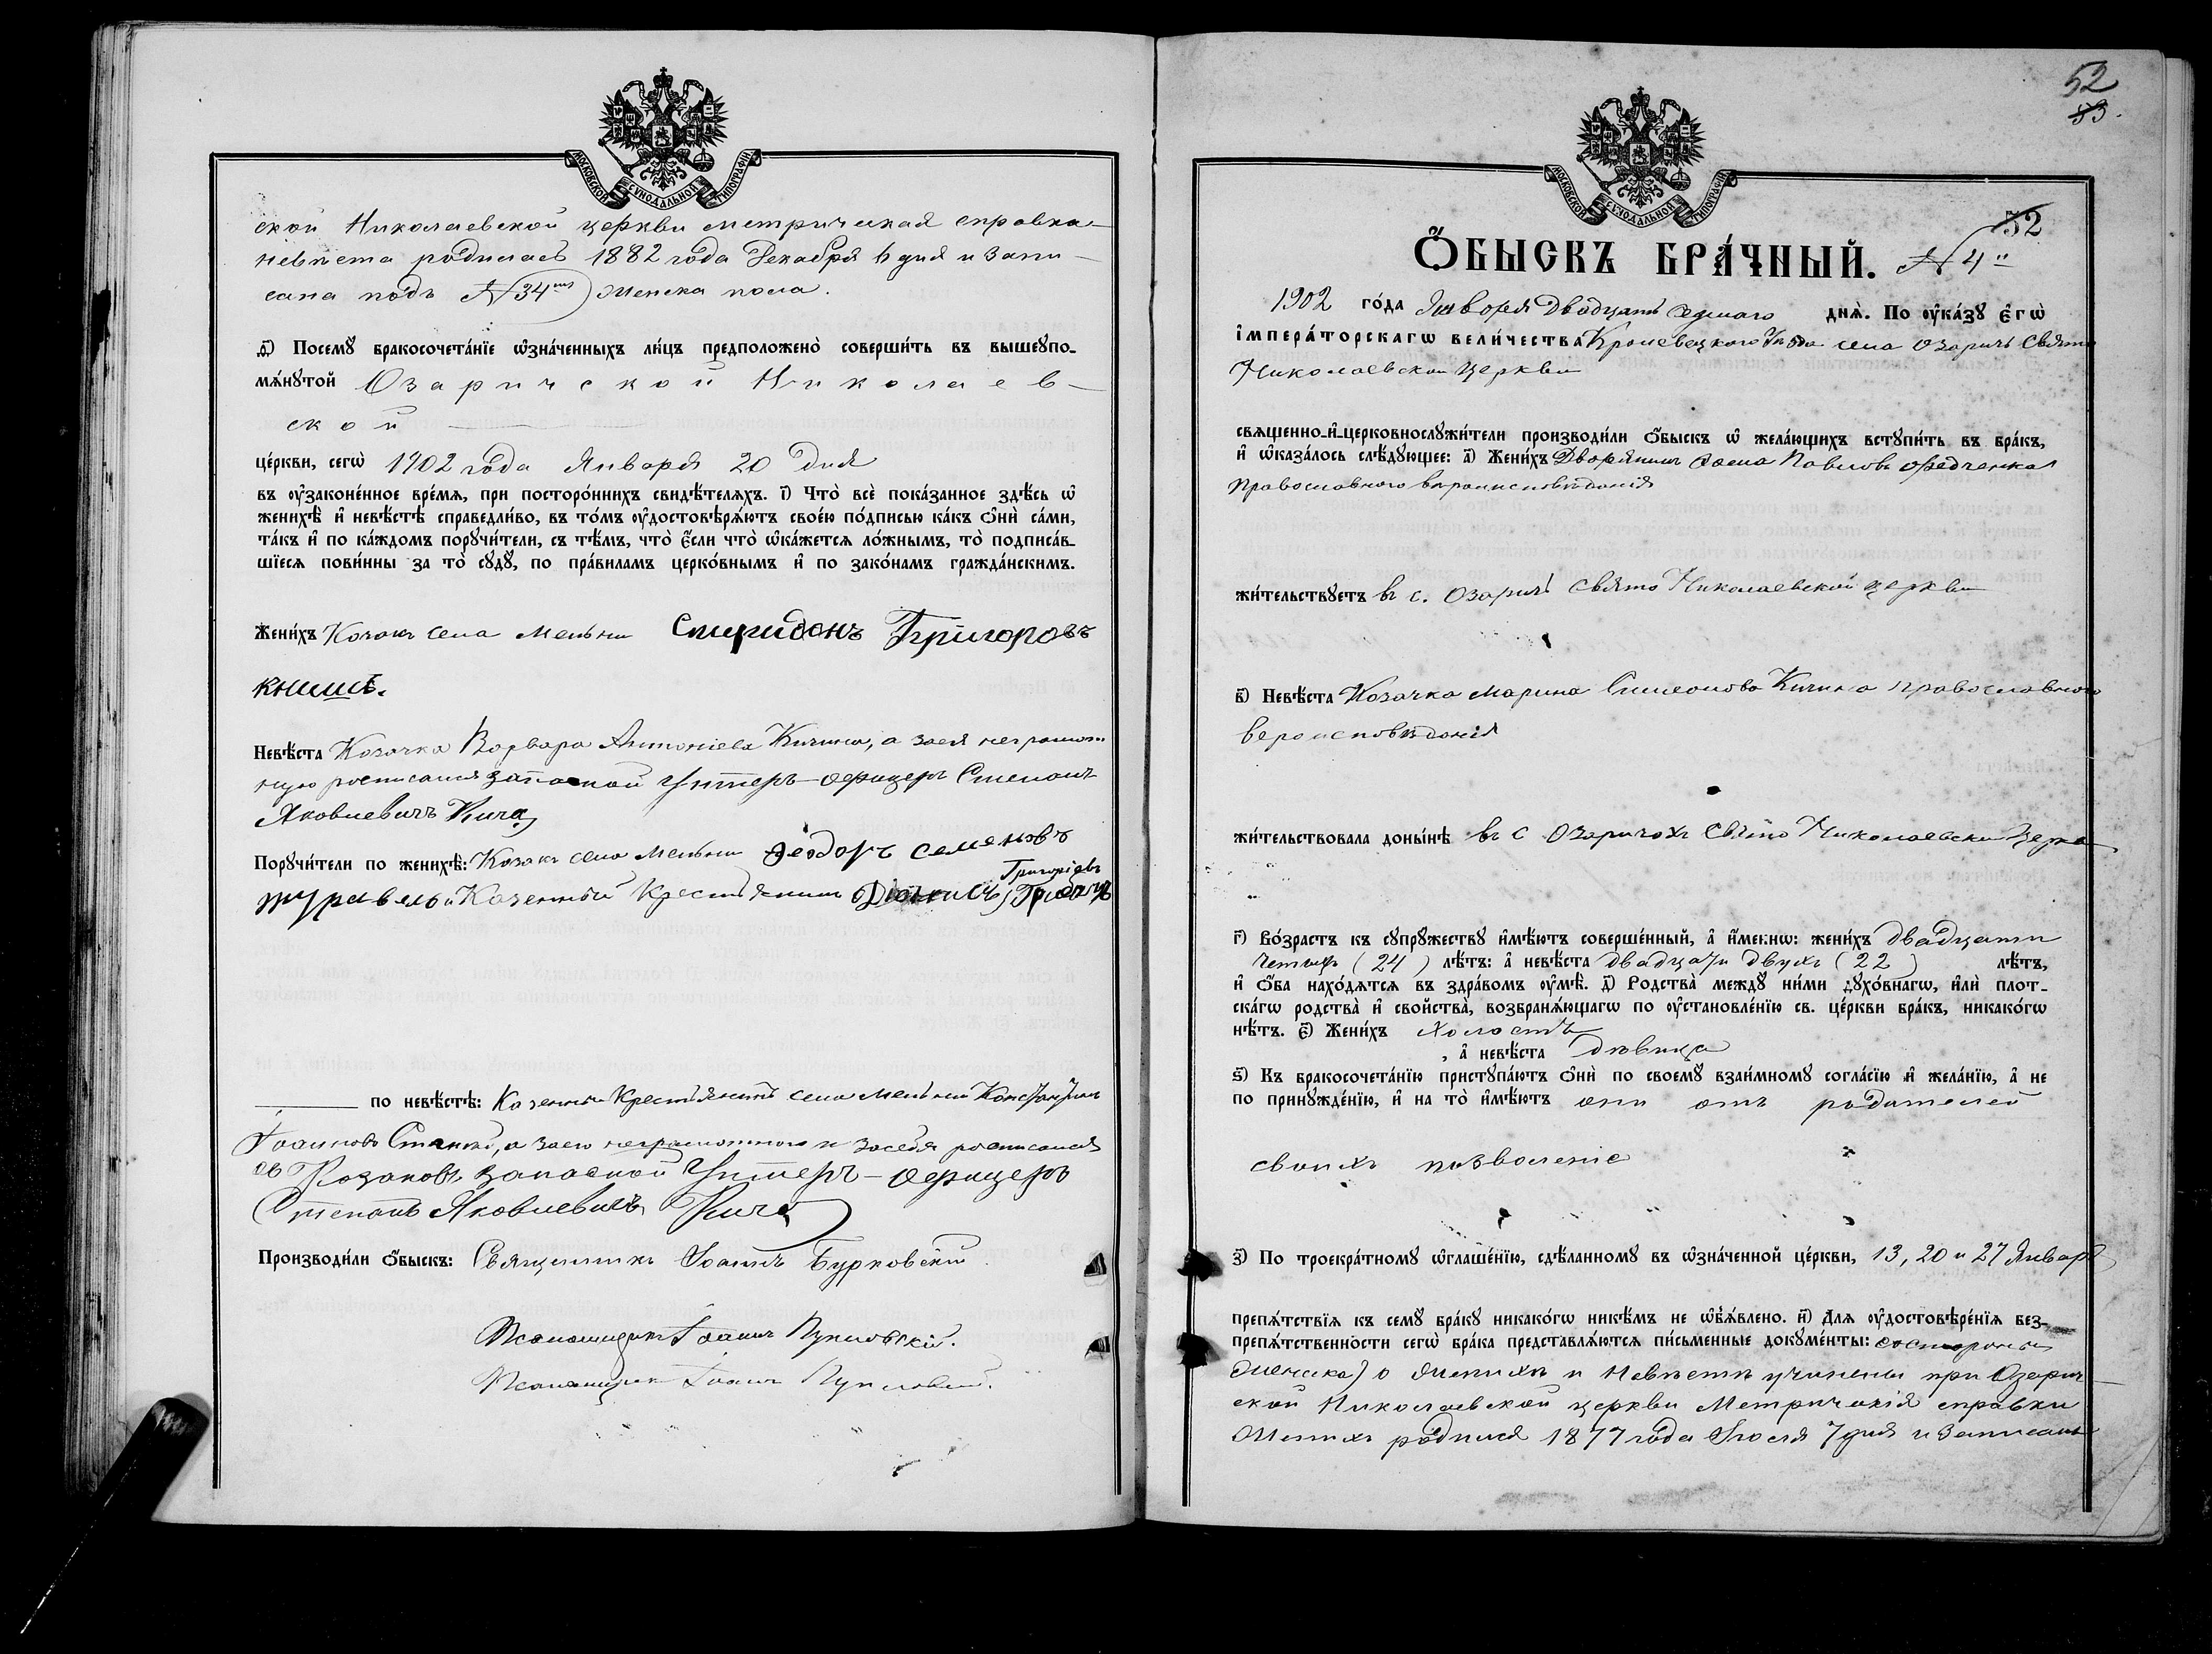 МОСКОВСКОЙ СѴНОДАЛЬНОЙ ТИПОГРАФІИ
ской Николаевской церкви метрическая справка
невѣста родилась 1882 года Декабря 6 дня и запи-
сана подъ №34мъ) женска пола.
д҃) Посемꙋ бракосочета́нїе ѡ҆зна́ченныхъ ли́цъ предположено̀ соверши́ть въ вышеꙋпо-
мѧ́нꙋтой Озарической Николаев-
ской
це́ркви, сегѡ̀ 1902 года Января 20 дня
въ ᲂу҆зако́ненное вре́мѧ, при посторо́ннихъ свидѣ́телѧхъ. і҃) Что̀ всѐ пока́занное здѣ́сь ѡ҆
женихѣ̀ и҆ невѣ́стѣ справедли́во, въ то́мъ ᲂу҆достовѣрѧ́ютъ свое́ю по́дписью ка́къ ѻ҆нѝ са́ми,
та́къ и҆ по ка́ждомъ порꙋчи́тели, съ тѣ́мъ, что̀ є҆́сли что̀ ѡ҆ка́жетсѧ ло́жнымъ, то̀ подписа́в-
шїесѧ пови́нны за то̀ сꙋдꙋ̀, по пра́виламъ церко́внымъ и҆ по зако́намъ гражда́нскимъ.
Жени́хъ Козакъ села Мельни Спиридонъ Григоровъ
Книшъ.
Невѣ́ста Козачка Варвара Антоніева Кичина, а заея неграмот
ную росписался запасной Унтеръ-офицеръ Степанъ
Яковлевичъ Кича
Порꙋчи́тели по женихѣ̀: Козакъ села Мельни Ѳеодоръ Семеновъ
Григоріевъ
журавель и Казенный Крестьянинъ
по невѣ́стѣ: Казенный Крестьянинъ села Мельни Константинъ
Іоанновъ, а заего неграмотного и засебя росписался
Козаковъ запасной Унтеръ-офицеръ
Степанъ Яковлевичъ Кича
Производи́ли ѻ҆́быскъ: Священникъ Іоаннъ Бурковскій
Псаломщикъ Іоаннъ Пуциловскій.
Псаломщикъ Іоаннъ
52
53.
МОСКОВСКОЙ СѴНОДАЛЬНОЙ ТИПОГРАФІИ
52
Ѻ҆́БЫСКЪ БРА́ЧНЫЙ. №4й
1902 го́да Января Двадцать седмаго днѧ̀. По ᲂу҆ка́зꙋ є҆гѡ̀
і҆мпера́торскагѡ вели́чества Кролевецкого Уѣзда села Озаричъ Свято
Николаевской Церкви
свѧще́нно-и҆-церковнослꙋжи́тели производи́ли ѻ҆́быскъ ѡ҆ жела́ющихъ встꙋпи́ть въ бра́къ,
и҆ ѡ҆каза́лось слѣ́дꙋющее: а҃) Жени́хъ Дворянинъ Павловъ Ѳедченко
Православного вѣроисповѣданія
жи́тельствꙋетъ въ с. Озаричѣ Свято Николаевской церкви
в҃) Невѣ́ста Козачка Марина Симеонова Кичина православного
вероисповѣданія
жи́тельствовала доны́нѣ въ с Озаричахъ Свято Николаевской Церкв
г҃) Во́зрастъ къ сꙋпрꙋжествꙋ и҆мѣ́ютъ соверше́нный, а҆ и҆́меннѡ: жени́хъ двадцати
Четырѣ (24) лѣ́тъ: а҆ невѣ́ста двадцати двухъ (22) лѣ́тъ,
и҆ ѻ҆́ба нахо́дѧтсѧ въ здра́вомъ ᲂу҆мѣ̀. д҃) Родства̀ междꙋ ни́ми дꙋхо́внагѡ, и҆лѝ плот-
ска́гѡ родства̀ и҆ свойства̀, возбранѧ́ющагѡ по ᲂу҆становле́нїю св. це́ркви бра́къ, никако́гѡ
нѣ́тъ. є҃) Жени́хъ холостъ
, а҆ невѣ́ста дѣвица
ѕ҃) Къ бракосочета́нїю пристꙋпа́ютъ ѻ҆нѝ по своемꙋ̀ взаи́мномꙋ согла́сїю и҆ жела́нїю, а҆ не
по принꙋжде́нїю, и҆ на то̀ и҆мѣ́ютъ они отъ родителей
своихъ позволеніе
з҃) По троекра́тномꙋ ѡ҆глаше́нїю, сдѣ́ланномꙋ въ ѡ҆зна́ченной це́ркви, 13, 20 и 27 Январѣ
препѧ́тствїѧ къ семꙋ̀ бра́кꙋ никако́гѡ никѣ́мъ не ѡ҆б̾ѧ́влено. и҃) Длѧ ᲂу҆достовѣре́нїѧ без-
препѧ́тственности сегѡ̀ бра́ка представлѧ́ютсѧ пи́сьменные докꙋме́нты: состороны
Жениха) о женихѣ и невѣстѣ учинены при Озарич-
ской Николаевской церкви Метрическія справки
Женихъ родился 1877 года Іюля 7 дня и записанъ